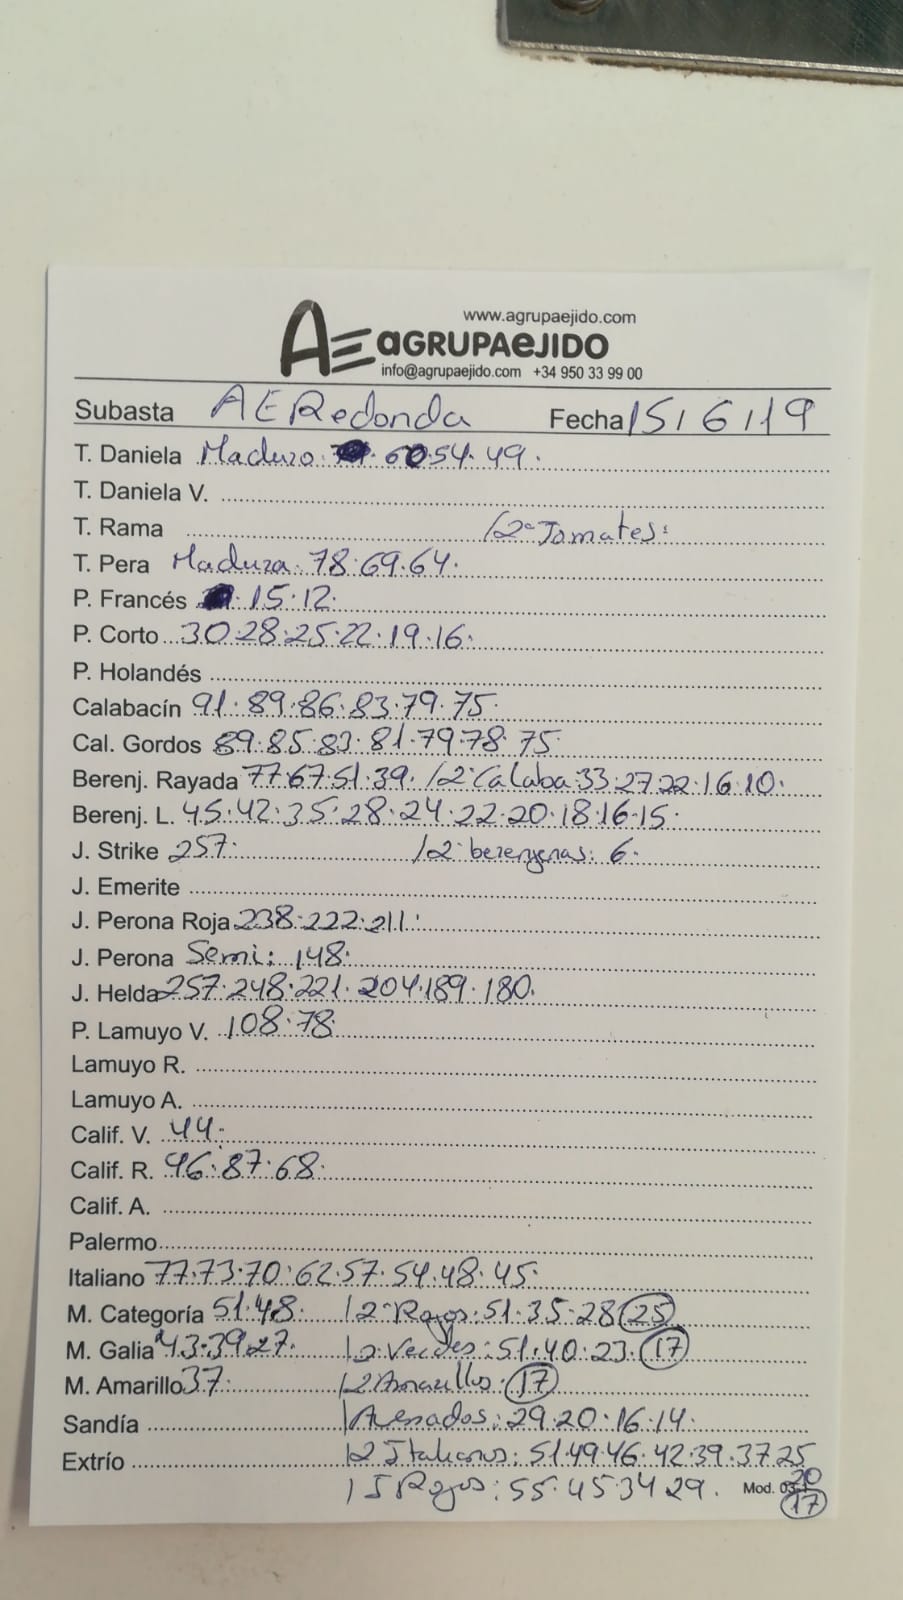 www.agrupaejido.com
AE aGRUPAeJIDO
info@agrupaejido.com +34 950 33 99 00
Subasta AE Redonda Fecha 15/6/19
T. Daniela Maduro 60 54. 49.
T. Daniela V.
T. Rama /2ª Tomates:
T. Pera Madura. 78.69.64.
P. Francés 15.12.
P. Corto 30.28.25.22.19.16.
P. Holandés
Calabacín 91.89.86.83.79.75.
Cal. Gordos 89.85.83.81.79.78.75.
Berenj. Rayada 77.67.51.39. /2ª Calaba:33.27.22.16.10.
Berenj. L. 45.42.35.28.24.22.20.18.16.15.
J. Strike 257. /2ª berenjenas: 6.
J. Emerite
J. Perona Roja 238.222.211.
J. Perona Semi: 148.
J. Helda 257.248.221.204.189.180.
P. Lamuyo V. 108.78.
Lamuyo R.
Lamuyo A.
Calif. V. 44.
Calif. R. 96.87.68.
Calif. A.
Palermo
Italiano 77.73.70.62.57.54.48.45.
M. Categoría 51.48. /2ª Rojos:51.35.28 25
M. Galia 43.39.27. /2 Verdes:51.40.23.17
M. Amarillo 37. /2 Amarillos: 17
Sandía /Asados:29.20.16.14.
Extrío /2 Italianos: 51.49.46.42.39.37.25
/I Rojos: 55.45.34 29. Mod. 20
17